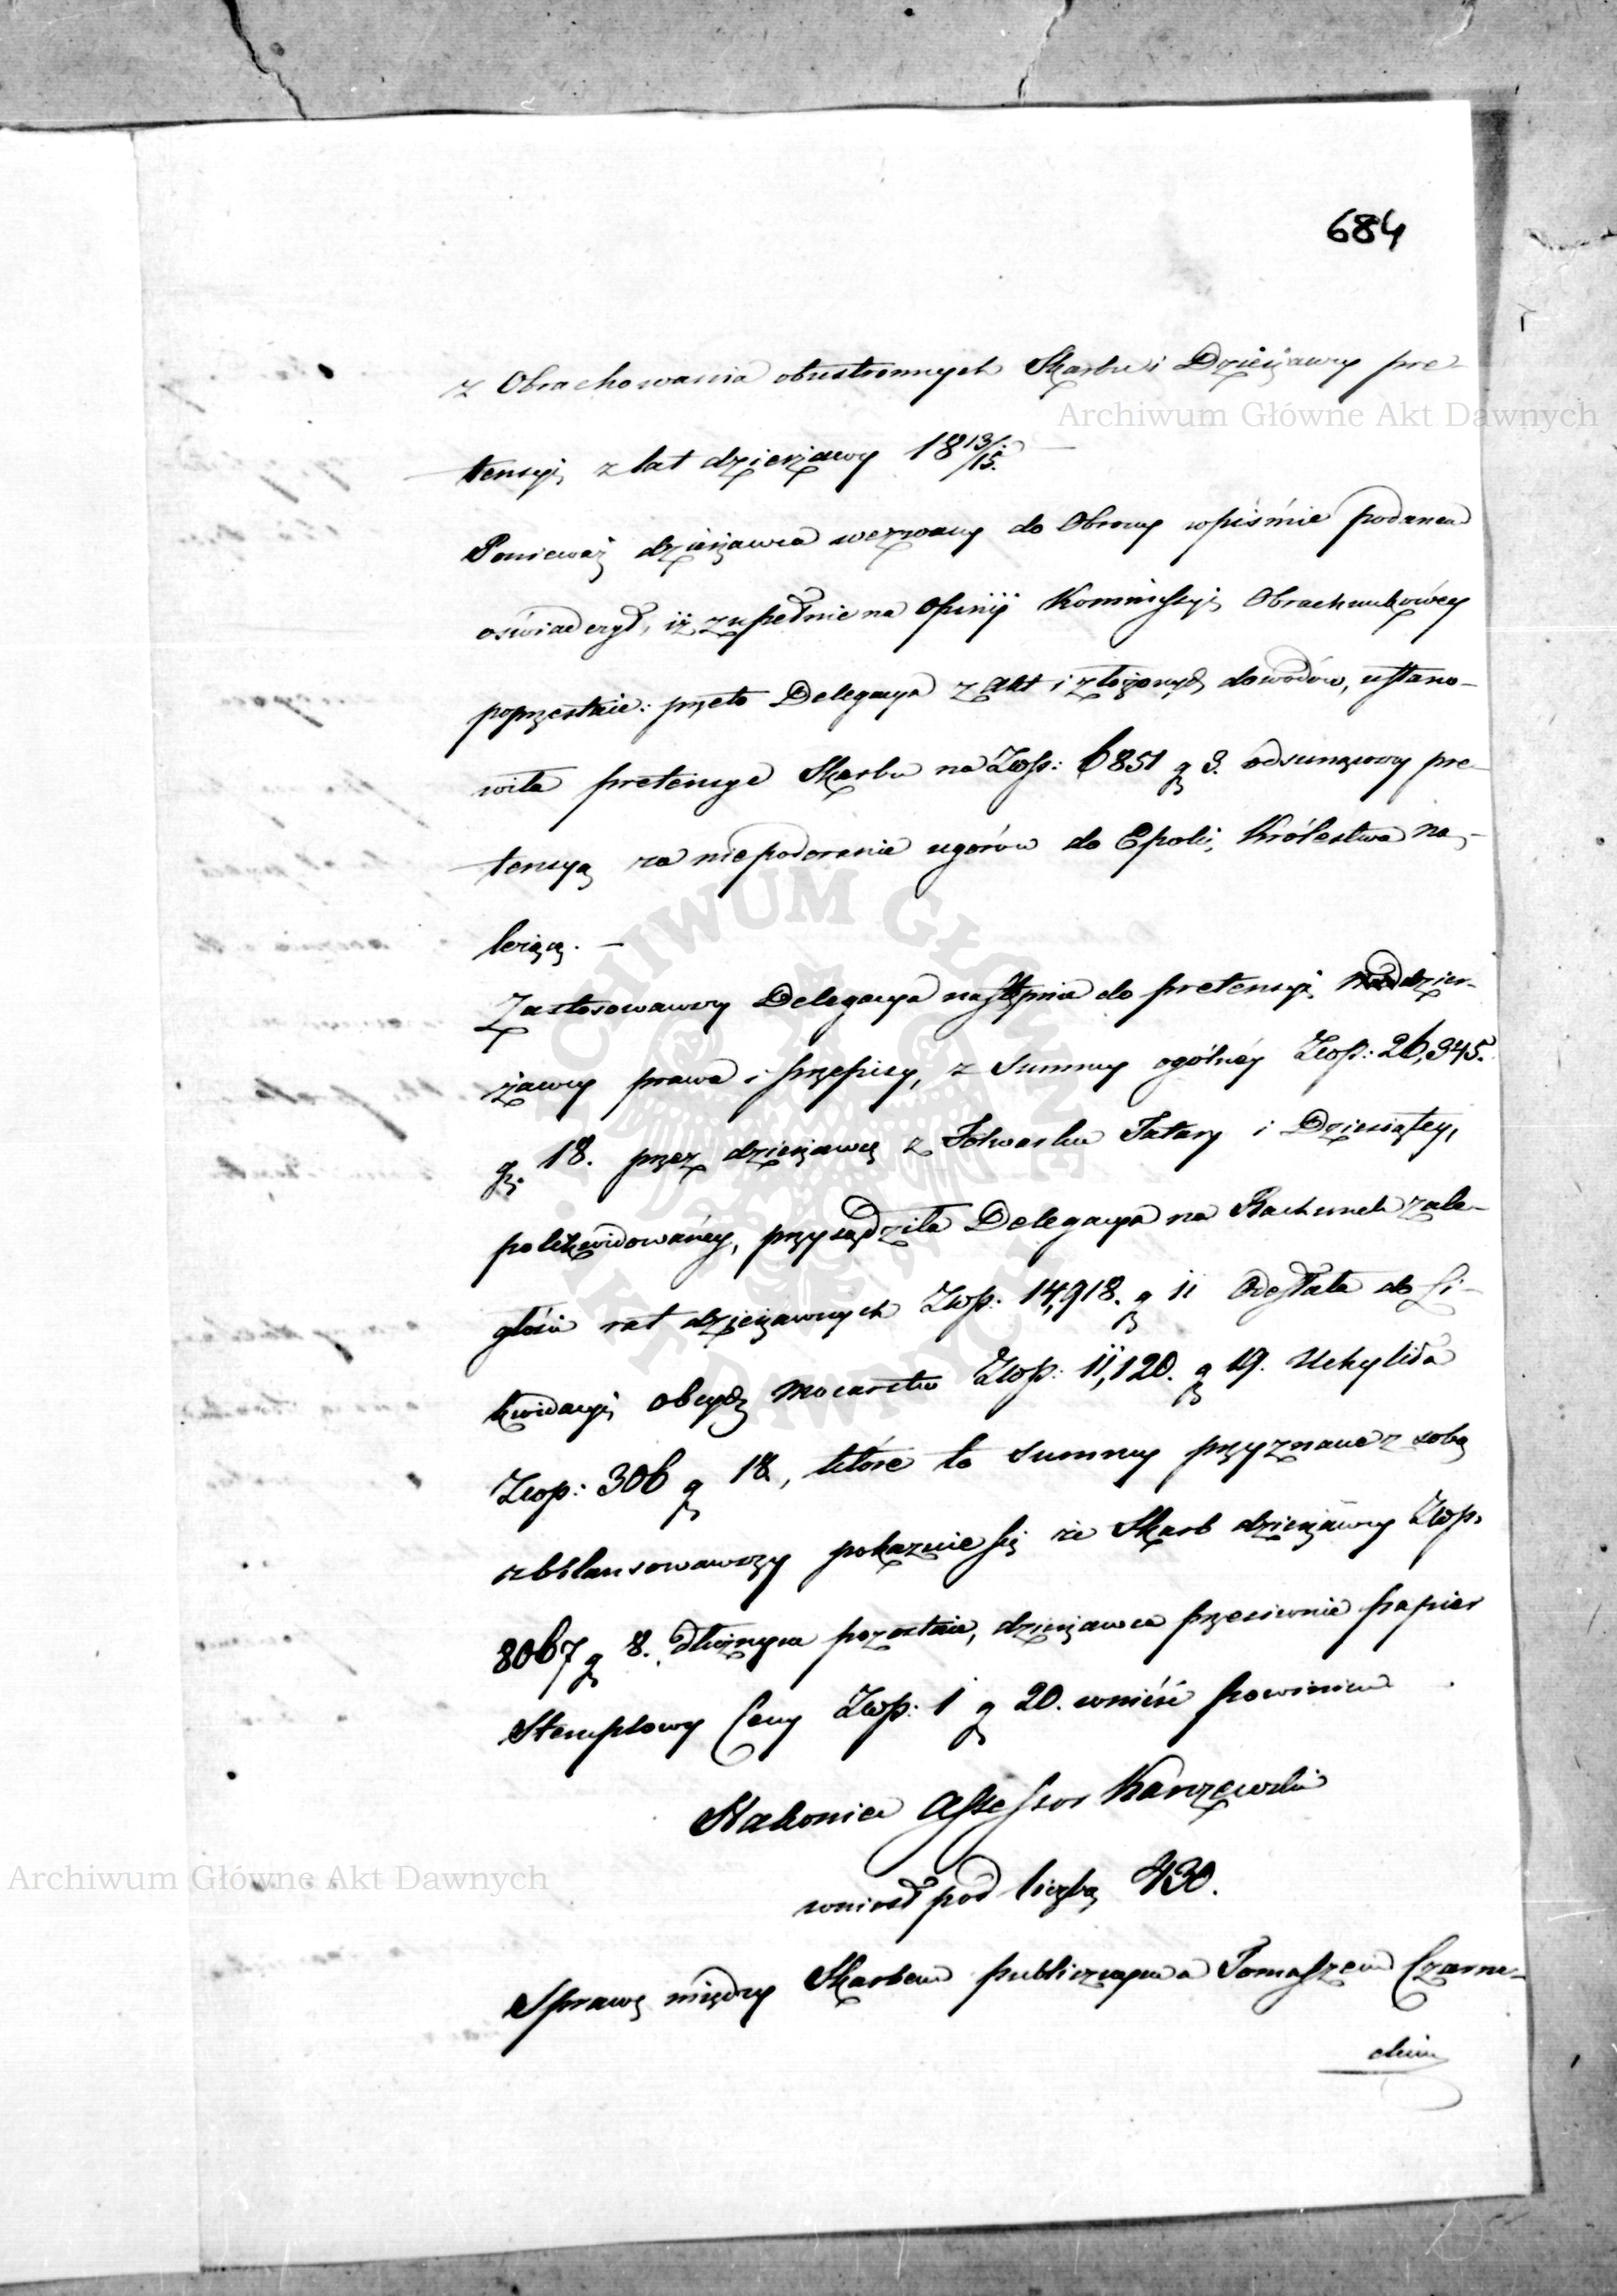 684
z Obrachowania obustronnych Skarbu i Dzierżawcy pre-
Archiwum Główne Akt Dawnych
tensyi z lat dzierżawy 18 13/15. —
Ponieważ dzierżawca wezwany do Obrony w piśmie podanem
oświadczył, iż zupełnie na Opinii Kommissyi Obrachunkowey
poprzestaie: przeto Delegacya z Akt i złożonych dowodów, ustano-
wiła pretensye Skarbu na Złop: 6851 g 3. odsunąwszy pre-
tensyą za niepodoranie ugorów do Epoki Królestwa na-
leżącą. —
Zastosowawszy Delegacya następnie do pretensyi dzier-
żawcy prawa i przepisy, z Summy ogólney Złop: 26,345.
gr. 18. przez dzierżawcę z Folwarku Tatary i Dziesiątey,
polikwidowaney, przysądziła Delegacya na Rachunek zale-
głości rat dzierżawnych Złop: 14,918. g 11 Odesłała do Li-
kwidacyi obcych Mocarstw Złop: 11,120. g 19. Uchyliła
Złop: 306 g 18, które to Summy przyznane z sobą
zbilansowawszy pokazuie się że Skarb dzierżawcy Złop.
8067 g 8. Dłużnym pozostaie, dzierżawca przeciwnie papier
Stemplowy Ceny Złop: 1 g 20. wnieść powinien
Nakoniec Assessor Karczewski
Archiwum Główne Akt Dawnych
wniosł pod liczbą 430.
Sprawę między Skarbem publicznym a Tomaszem Czarne-
ckim
ARCHIWUM GŁÓWNE AKT DAWNYCH